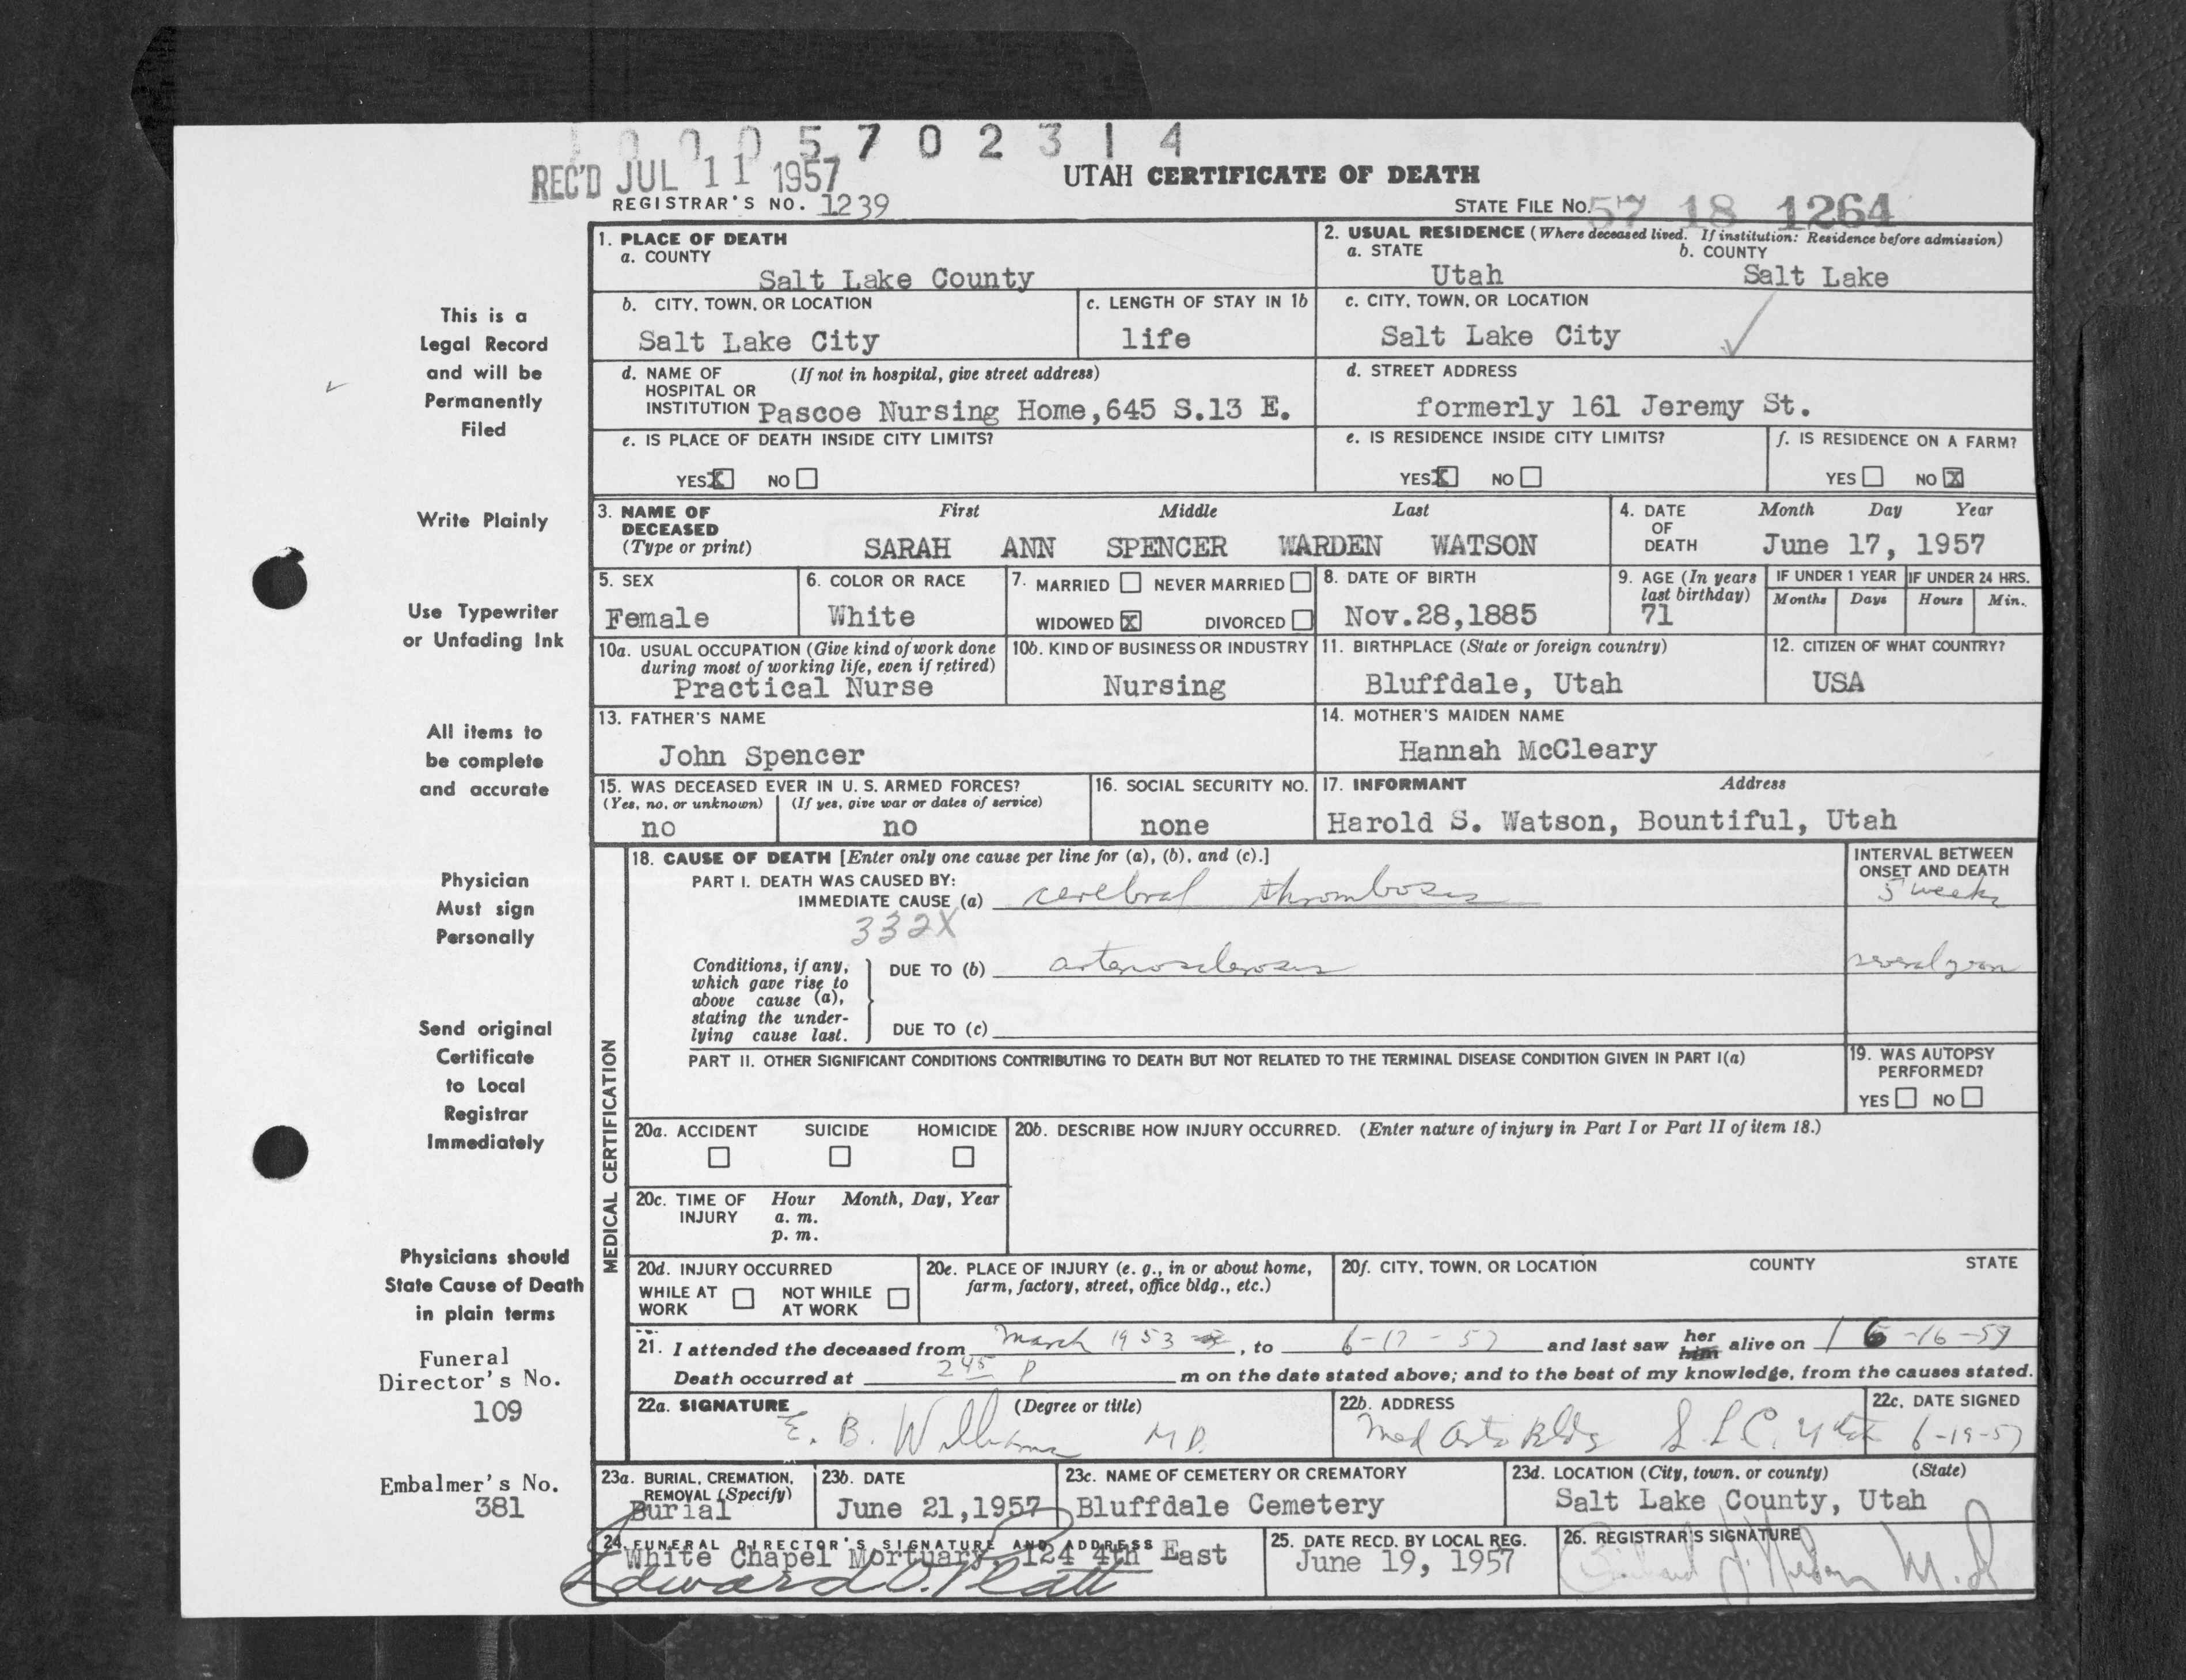 1 0 0 0 5 7 0 2 3 1 4
REC'D JUL 11 1957
UTAH CERTIFICATE OF DEATH
REGISTRAR'S NO. 1239
STATE FILE NO. 57 18 1264
This is a
Legal Record
and will be
Permanently
Filed
Write Plainly
Use Typewriter
or Unfading Ink
All items to
be complete
and accurate
Physician
Must sign
Personally
Send original
Certificate
to Local
Registrar
Immediately
Physicians should
State Cause of Death
in plain terms
Funeral
Director's No.
109
Embalmer's No.
381
1. PLACE OF DEATH
a. COUNTY
Salt Lake County
2. USUAL RESIDENCE (Where deceased lived. If institution: Residence before admission)
a. STATE b. COUNTY
Utah Salt Lake
b. CITY, TOWN, OR LOCATION
Salt Lake City
c. LENGTH OF STAY IN 1b
life
c. CITY, TOWN, OR LOCATION
Salt Lake City
d. NAME OF (If not in hospital, give street address)
HOSPITAL OR
INSTITUTION Pascoe Nursing Home,645 S.13 E.
d. STREET ADDRESS
formerly 161 Jeremy St.
e. IS PLACE OF DEATH INSIDE CITY LIMITS?
YES X NO
e. IS RESIDENCE INSIDE CITY LIMITS?
YES X NO
f. IS RESIDENCE ON A FARM?
YES NO X
3. NAME OF First Middle Last
DECEASED
(Type or print) SARAH ANN SPENCER WARDEN WATSON
4. DATE Month Day Year
OF
DEATH June 17, 1957
5. SEX
Female
6. COLOR OR RACE
White
7. MARRIED NEVER MARRIED
WIDOWED X DIVORCED
8. DATE OF BIRTH
Nov.28,1885
9. AGE (In years
last birthday)
71
IF UNDER 1 YEAR IF UNDER 24 HRS.
Months Days Hours Min.
10a. USUAL OCCUPATION (Give kind of work done
during most of working life, even if retired)
Practical Nurse
10b. KIND OF BUSINESS OR INDUSTRY
Nursing
11. BIRTHPLACE (State or foreign country)
Bluffdale, Utah
12. CITIZEN OF WHAT COUNTRY?
USA
13. FATHER'S NAME
John Spencer
14. MOTHER'S MAIDEN NAME
Hannah McCleary
15. WAS DECEASED EVER IN U. S. ARMED FORCES?
(Yes, no, or unknown) (If yes, give war or dates of service)
no no
16. SOCIAL SECURITY NO.
none
17. INFORMANT Address
Harold S. Watson, Bountiful, Utah
MEDICAL CERTIFICATION
18. CAUSE OF DEATH [Enter only one cause per line for (a), (b), and (c).]
INTERVAL BETWEEN
ONSET AND DEATH
PART I. DEATH WAS CAUSED BY:
IMMEDIATE CAUSE (a) cerebral thrombosis 5 weeks
332X
Conditions, if any,
which gave rise to
above cause (a),
stating the under-
lying cause last.
DUE TO (b) arteriosclerosis several years
DUE TO (c)
PART II. OTHER SIGNIFICANT CONDITIONS CONTRIBUTING TO DEATH BUT NOT RELATED TO THE TERMINAL DISEASE CONDITION GIVEN IN PART I(a)
19. WAS AUTOPSY
PERFORMED?
YES NO
20a. ACCIDENT SUICIDE HOMICIDE
20b. DESCRIBE HOW INJURY OCCURRED. (Enter nature of injury in Part I or Part II of item 18.)
20c. TIME OF Hour Month, Day, Year
INJURY a. m.
p. m.
20d. INJURY OCCURRED
WHILE AT NOT WHILE
WORK AT WORK
20e. PLACE OF INJURY (e. g., in or about home,
farm, factory, street, office bldg., etc.)
20f. CITY, TOWN, OR LOCATION COUNTY STATE
21. I attended the deceased from March 1953, to 6-17-57 and last saw her him alive on 6-16-57
Death occurred at 2 45 P m on the date stated above; and to the best of my knowledge, from the causes stated.
22a. SIGNATURE (Degree or title)
E. B. Williams M.D.
22b. ADDRESS
Med Arts Bldg S.L.C. Utah
22c. DATE SIGNED
6-19-57
23a. BURIAL, CREMATION,
REMOVAL (Specify)
Burial
23b. DATE
June 21,1957
23c. NAME OF CEMETERY OR CREMATORY
Bluffdale Cemetery
23d. LOCATION (City, town, or county) (State)
Salt Lake County, Utah
24. FUNERAL DIRECTOR'S SIGNATURE AND ADDRESS
White Chapel Mortuary, 124 4th East
Edward O. Platt
25. DATE RECD. BY LOCAL REG.
June 19, 1957
26. REGISTRAR'S SIGNATURE
M.D.